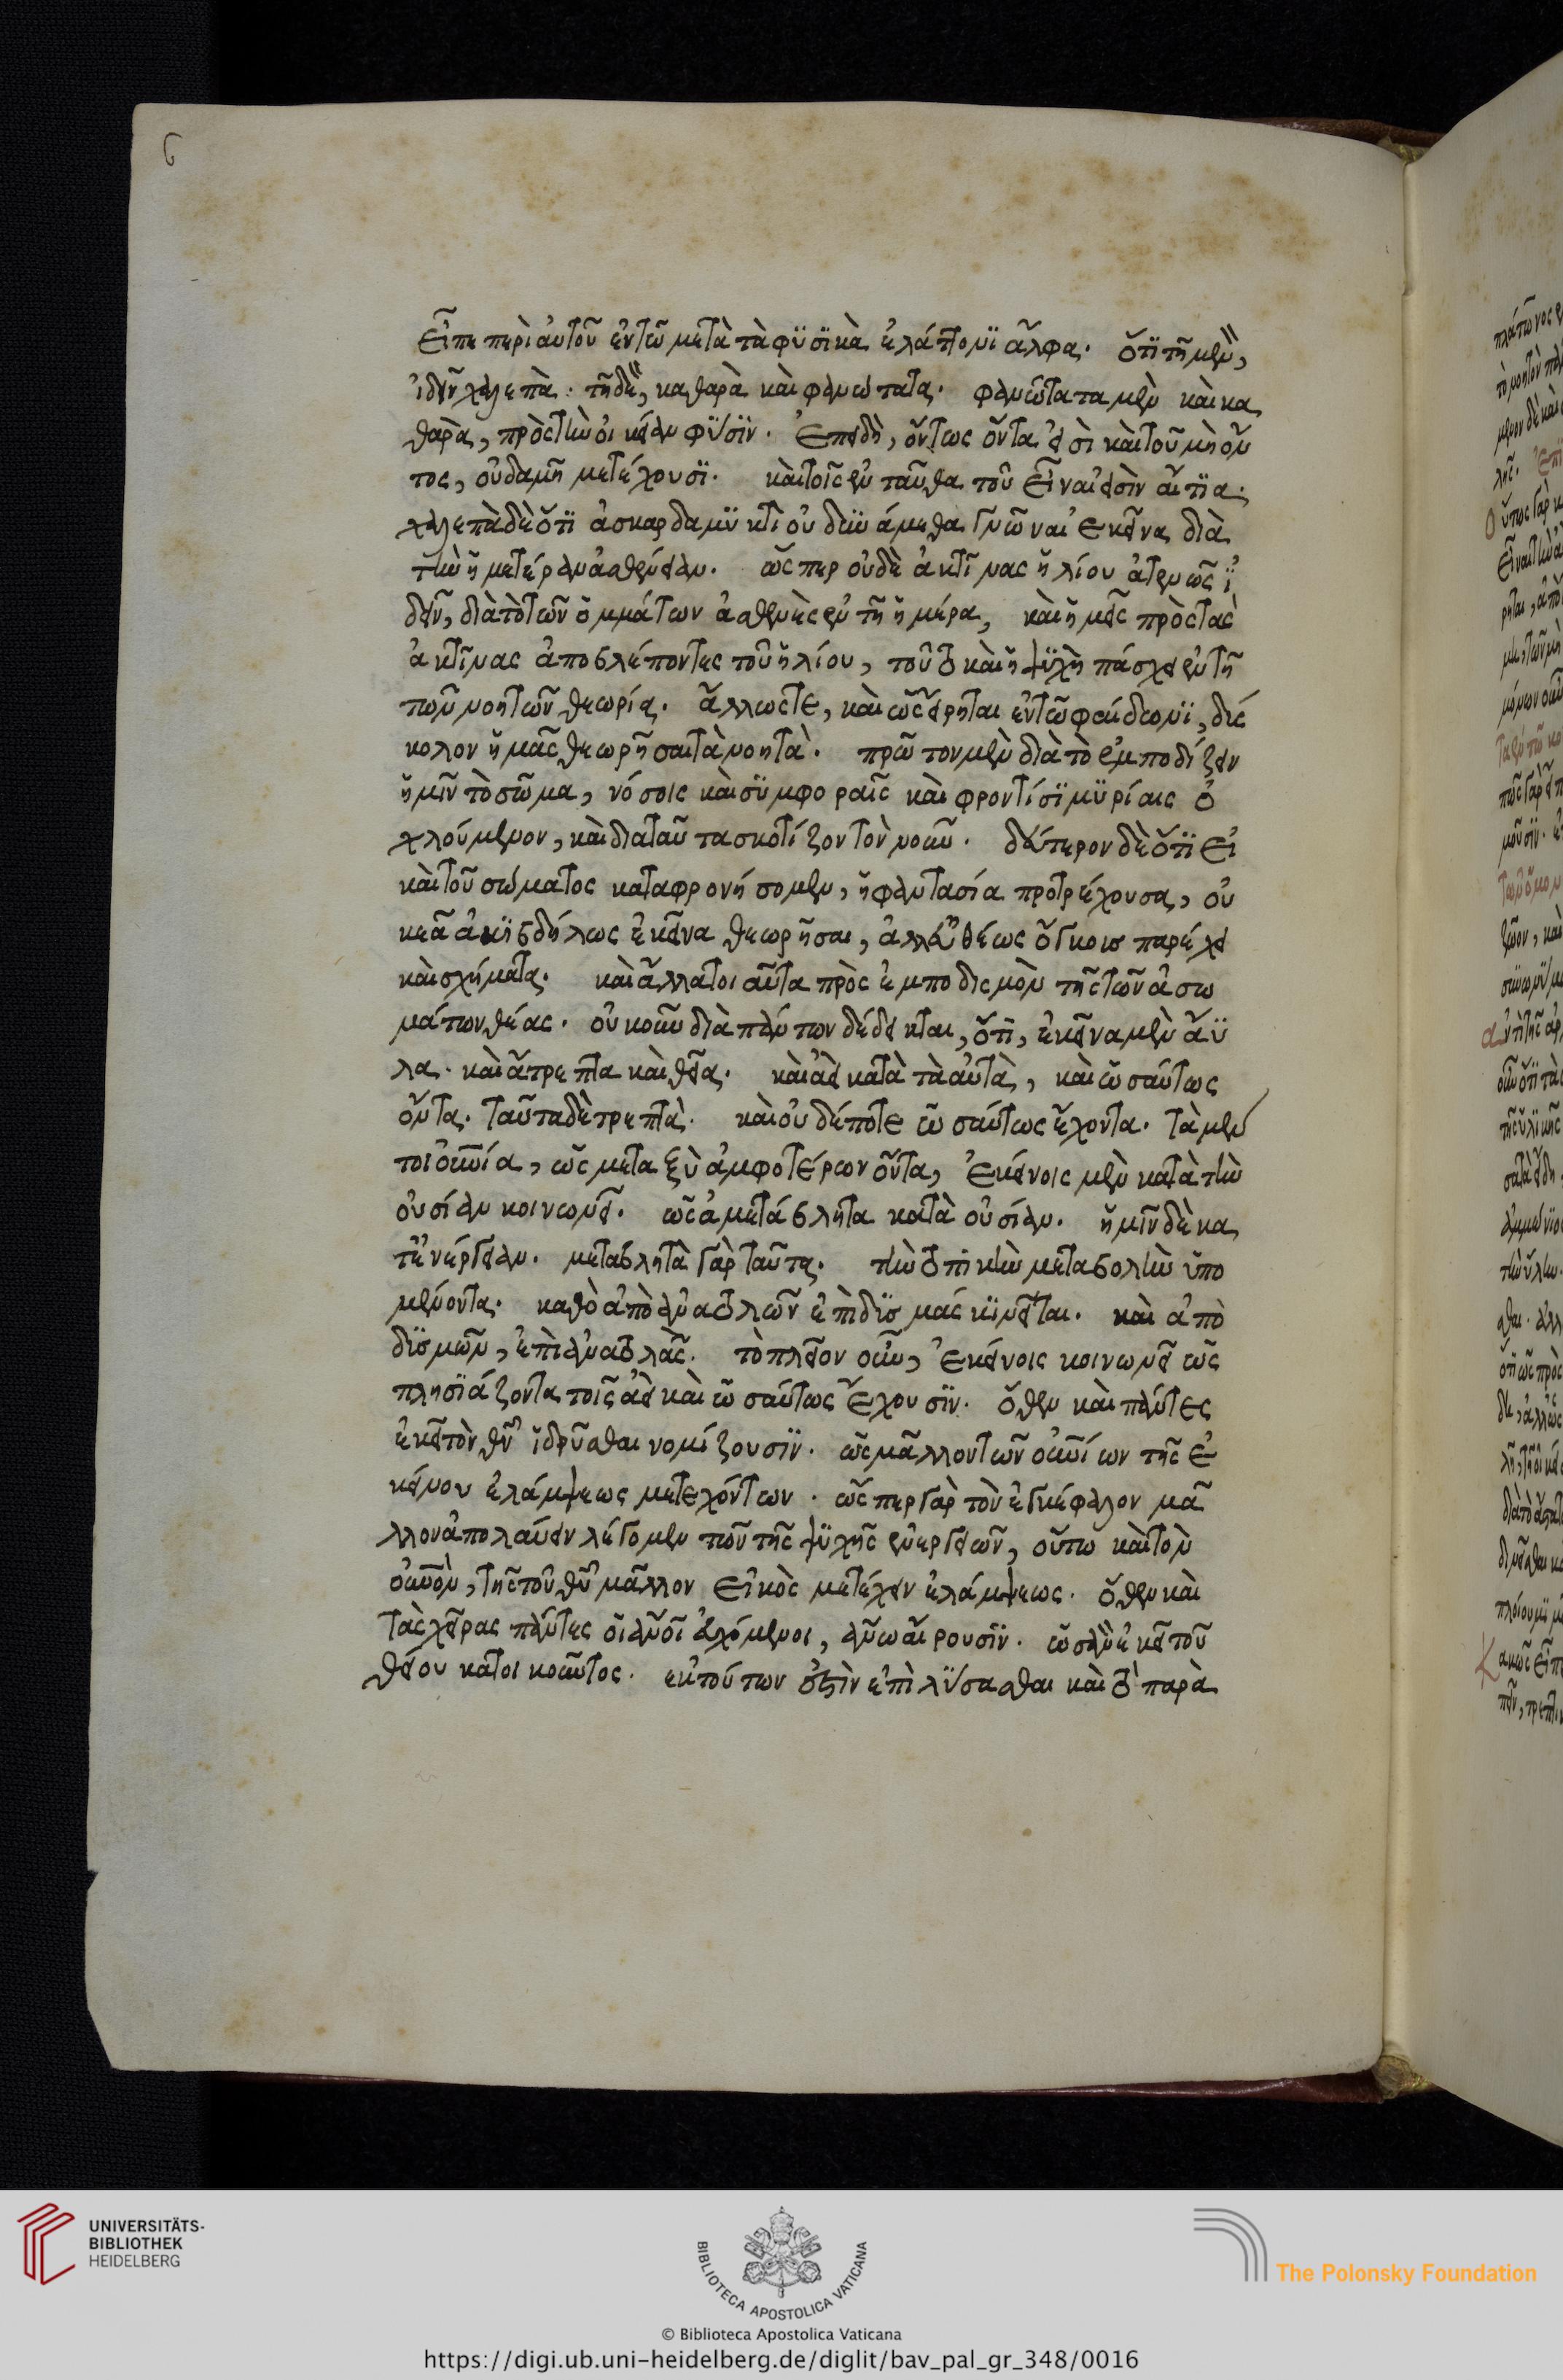 6
εἶπε περὶ αὐτοῦ ἐν τῶ μετὰ τὰ φϋσϊκὰ ἐλάττονϊ ἄλφα. ὅτϊ τῆ μὲν,
ἰδεῖν χαλεπὰ. τῆ δὲ, καθαρὰ καὶ φανώτατα. φανώτατα μὲν καὶ κα
θαρὰ, πρὸς τὴν οἰκείαν φϋσϊν. ἐπειδὴ, ὄντως ὄντα εἰσὶ καὶ τοῦ μὴ ὄν
τος, οὐδαμῆ μετέχουσϊ. καὶ τοῖς ἐν ταῦθα τοῦ εἶναι εἰσὶν αἴτϊα.
χαλεπὰ δὲ ὅτϊ ἀσκαρδαμϋκτὶ οὐ δϋνάμεθα γνῶναι ἐκεῖνα διὰ
τὴν ἡμετέραν ἀσθένειαν. ὥσπερ οὐδὲ ἀκτῖνας ἡλίου ἀτενῶς ἰ
δεῖν, διὰ τὸ τῶν ὀμμάτων ἀσθενὲς ἐν τῆ ἡμέρα, καὶ ἡμεῖς πρὸς τὰς
ἀκτῖνας ἀποβλέποντες τοῦ ἡλίου, τοῦτο καὶ ἡ ψϋχὴ πάσχει ἐν τῆ
τῶν νοητῶν θεωρία. ἄλλως τε, καὶ ὡς εἴρηται ἐν τῶ φαίδωνϊ, δύς
κολον ἡμᾶς θεωρῆσαι τὰ νοητὰ. πρῶτον μὲν διὰ τὸ ἐμποδίζειν
ἡμῖν τὸ σῶμα, νόσοις καὶ σϋμφοραῖς καὶ φροντίσϊ μϋρίαις ὀ
χλούμενον, καὶ διαταῦτα σκοτίζον τὸν νοῦν. δεύτερον δὲ ὅτϊ εἰ
καὶ τοῦ σώματος καταφρονήσομεν, ἡ φαντασία προτρέχουσα, οὐ
κ ἐᾶ ἀκϊβδήλως ἐκεῖνα θεωρῆσαι, ἀλλ' εὐθέως ὄγκοισ παρέχει
καὶ σχήματα. καὶ ἄλλα τοιαῦτα πρὸς ἐμποδισμὸν τῆς τῶν ἀσω
μάτων θέας. οὐκοῦν διὰ πάντων δέδεικται, ὅτϊ, ἐκεῖνα μὲν ἄϋ
λα. καὶ ἄτρεπτα καὶ θεῖα. καὶ ἀεὶ κατὰ τὰ αὐτὰ, καὶ ὡσαύτως
ὄντα. ταῦτα δὲ τρεπτὰ. καὶ οὐδέποτε ὡσαύτως ἔχοντα. τὰ μέν
τοι οὐράνϊα, ὡς μεταξὺ ἀμφοτέρων ὄντα, ἐκείνοις μὲν κατὰ τὴν
οὐσίαν κοινωνεῖ. ὡς ἀμετάβλητα κατὰ οὐσίαν. ἡμῖν δὲ κα
τ' ἐνέργειαν. μεταβλητὰ γὰρ ταῦτα. τὴν τοπϊκὴν μεταβολὴν ὑπο
μένοντα. καθὸ ἀπὸ ἀνατολῶν ἐπὶ δϋσμὰς κϊνεῖται. καὶ ἀπὸ
δϋσμῶν, ἐπὶ ἀνατολὰς. τὸ πλεῖον οὖν, ἐκείνοις κοινωνεῖ ὡς
πλησϊάζοντα τοῖς ἀεὶ καὶ ὡσαύτως ἔχουσϊν. ὅθεν καὶ πάντες
ἐκεῖ τὸν θν ἱδρῦσθαι νομίζουσϊν. ὡς μᾶλλον τῶν οὐνίων τῆς ἐ
κείνου ἐλάμψεως μετεχόντων. ὥσπερ γὰρ τὸν ἐγκέφαλον μᾶ
λλον ἀπολαύειν λέγομεν τῶν τῆς ψϋχῆς ἐνεργειῶν, οὕτω καὶ τὸν
οὐνὸν, τῆς τοῦ θυ μᾶλλον εἰκὸς μετέχειν ἐλάμψεως. ὅθεν καὶ
τὰς χεῖρας πάντες οἱ ανοι εὐχόμενοι, ἄνω αἴρουσϊν. ὡσὰν ἐκεῖ τοῦ
θείου κατοικοῦντος. ἐκ τούτων ἔξεστιν ἐπϊλϋσασθαι καὶ τὸ παρὰ
UNIVERSITÄTS-
BIBLIOTHEK
HEIDELBERG
BIBLIOTECA APOSTOLICA VATICANA
The Polonsky Foundation
© Biblioteca Apostolica Vaticana
https://digi.ub.uni-heidelberg.de/diglit/bav_pal_gr_348/0016